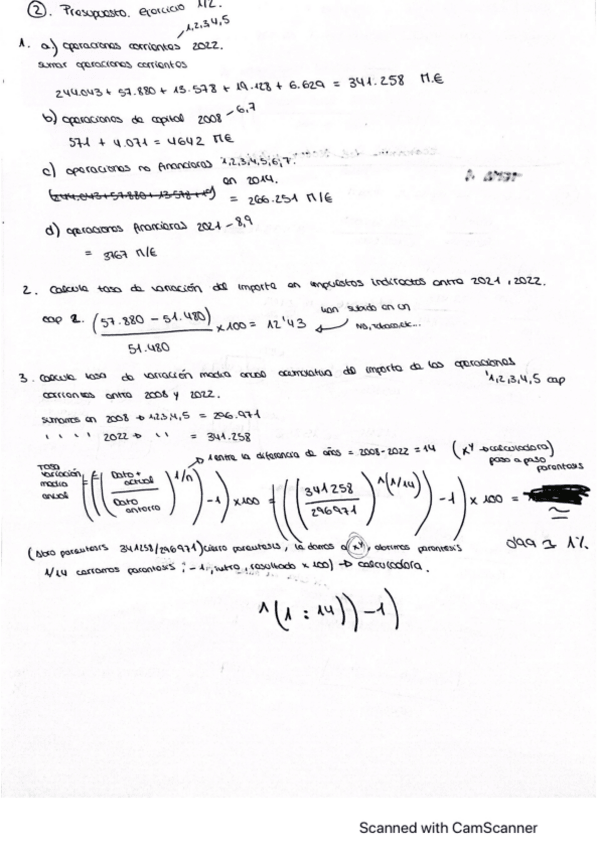 ② . Presupuesto. Ejercicio 1/2.
1,2,3,4,5
1. a) operaciones corrientes 2022.
sumar operaciones corrientes
244.043 + 57.880 + 13.578 + 19.128 + 6.629 = 341.258 M.€
b) operaciones de capital 2008 - 6,7
571 + 4.071 = 4642 M€
c) operaciones no financieras 1,2,3,4,5,6,7.
en 2014.
= 266.251 M/€
d) operaciones financieras 2021 - 8,9
= 3767 M/€
2. Calcula tasa de variación del importe en impuestos indirectos entre 2021 , 2022.
cap 2. (57.880 - 51.480) x100 = 12'43
han subido en un
51.480
3. Calcula tasa de variación media anual acumulativa del importe de las operaciones
1,2,3,4,5 cap
corrientes entre 2008 y 2022.
sumamos en 2008 → 1,2,3,4,5 = 296.971
" " " " 2022 → " " = 341.258
→ 1 entre la diferencia de años = 2008-2022 = 14 (x^y → calculadora)
paso a paso
parentesis
Tasa variación media anual = (((Dato + actual / Dato anterior)^1/n) - 1) x100 = (((341258 / 296971)^(1/14)) - 1) x 100 = ≃
(Abro parentesis 341258/296971) cierro parentesis, le damos a x^y, abrimos parentesis
1/14 cerramos parentesis ; -1, intro, resultado x 100) → calculadora.
^(1 : 14)) -1)
Scanned with CamScanner